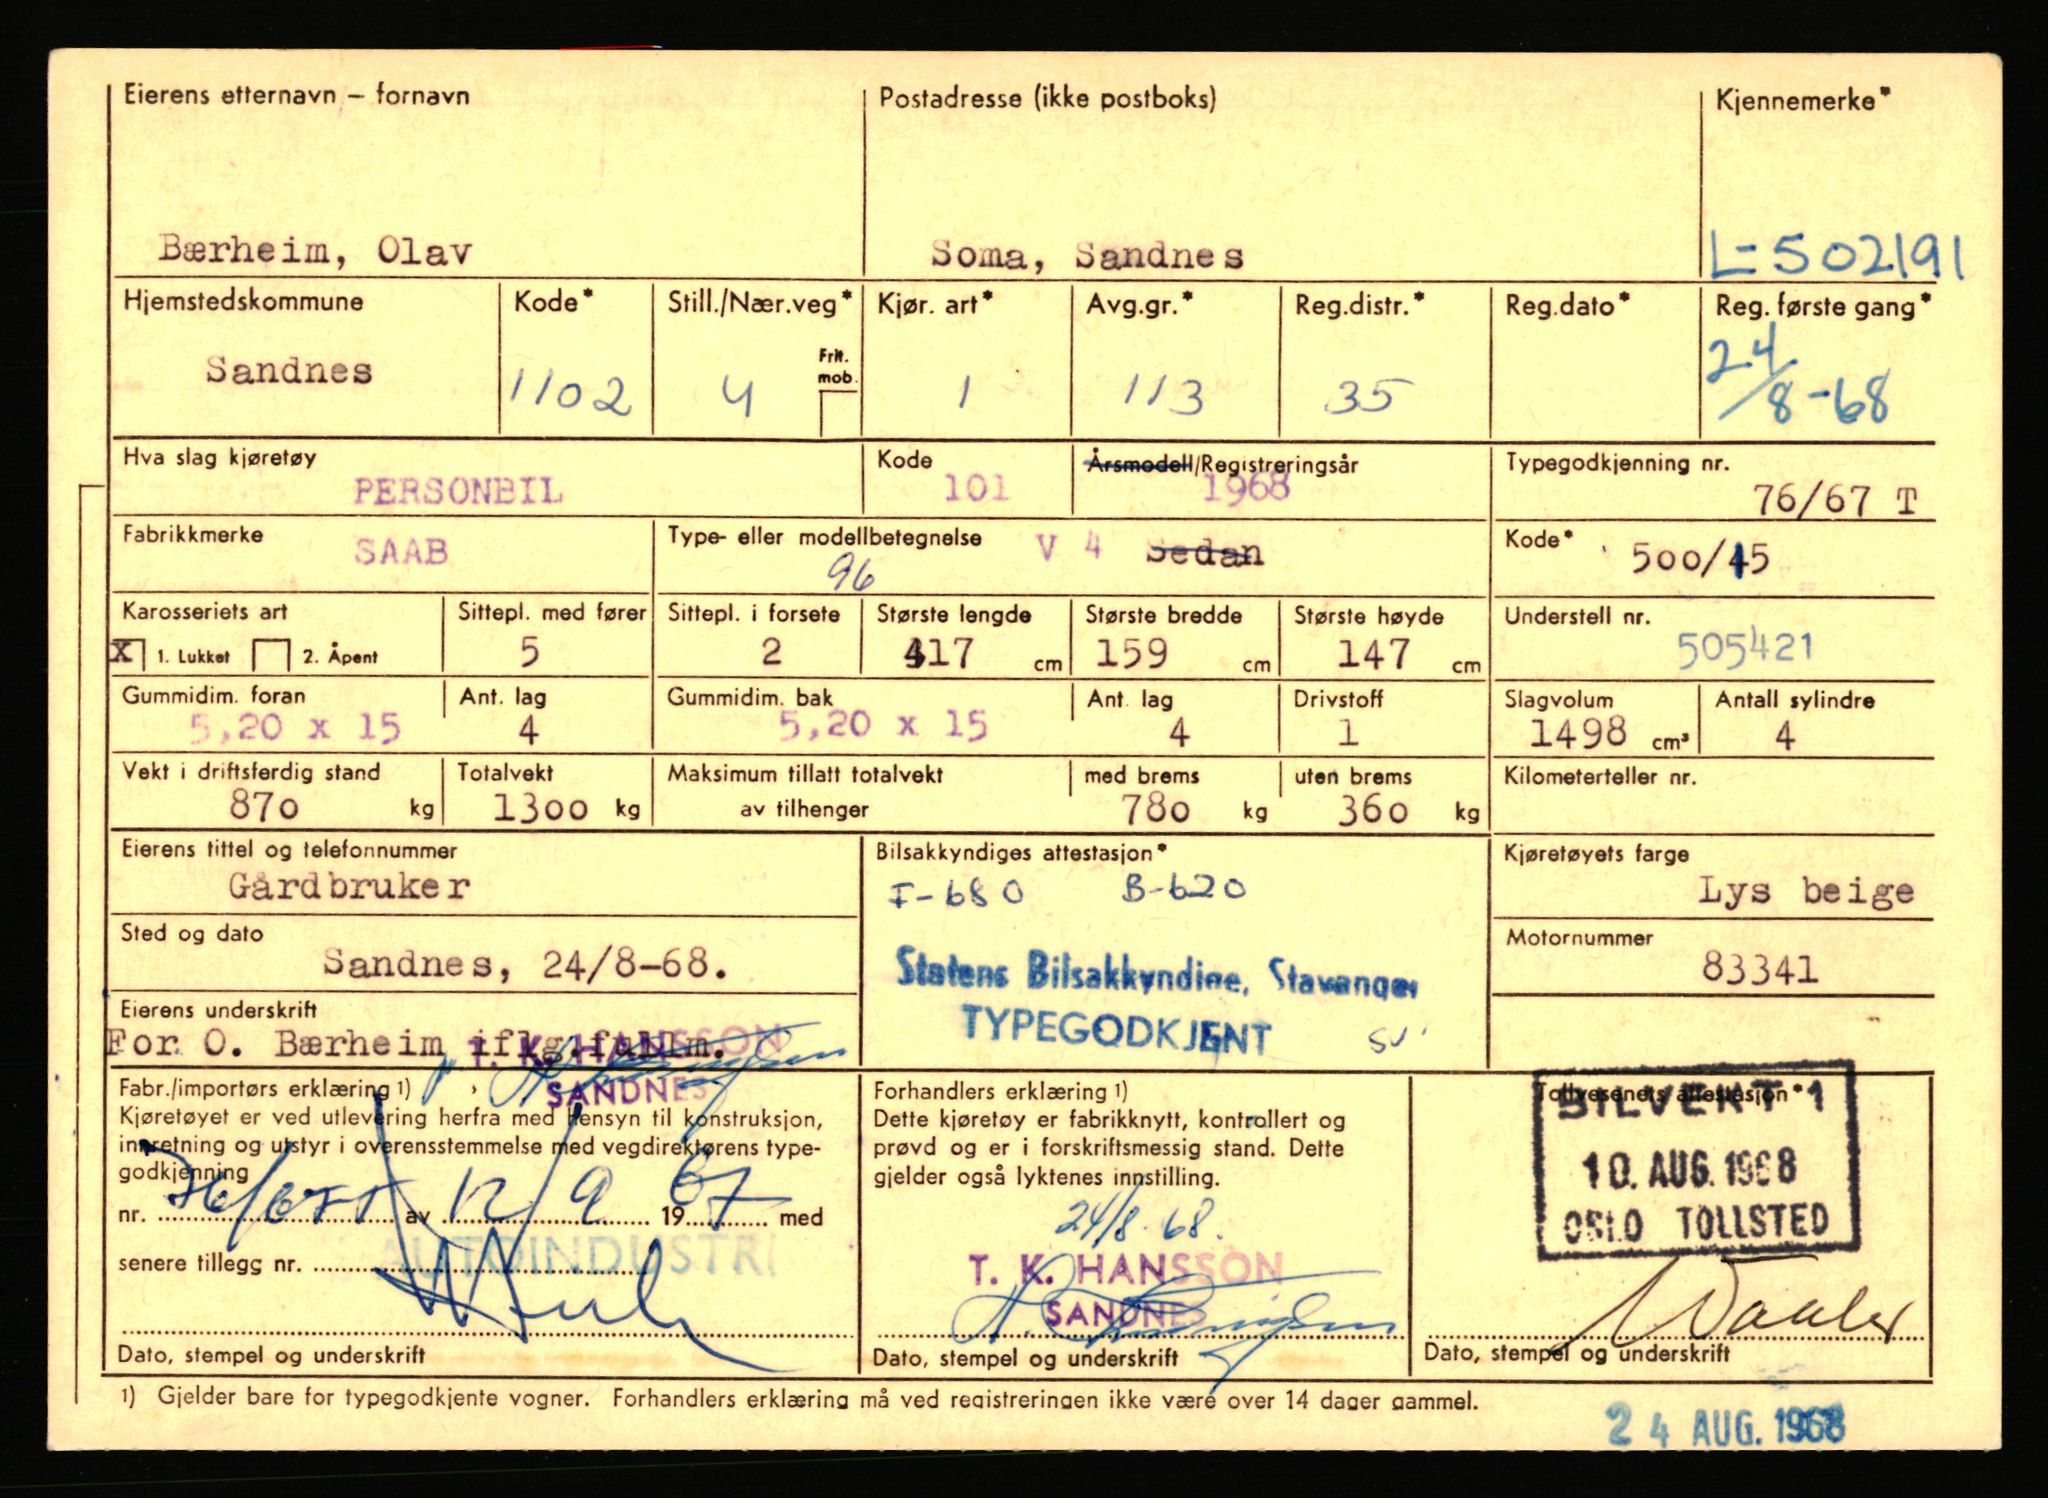 Eierens etternavn – fornavn Postadresse (ikke postboks) Kjennemerke*
Bærheim, Olav Soma, Sandnes L-502191
Hjemstedskommune Kode* Still./Nær.veg* Kjør. art* Avg.gr.* Reg.distr.* Reg.dato* Reg. første gang*
Sandnes 1102 4 Frit. mob. 1 113 35 24/8-68
Hva slag kjøretøy Kode Årsmodell/Registreringsår Typegodkjenning nr.
PERSONBIL 101 1968 76/67 T
Fabrikkmerke Type- eller modellbetegnelse Kode*
SAAB 96 V 4 Sedan 500/45
Karosseriets art Sittepl. med fører Sittepl. i forsete Største lengde Største bredde Største høyde Understell nr.
X 1. Lukket 2. Åpent 5 2 417 cm 159 cm 147 cm 505421
Gummidim. foran Ant. lag Gummidim. bak Ant. lag Drivstoff Slagvolum Antall sylindre
5,20 x 15 4 5,20 x 15 4 1 1498 cm³ 4
Vekt i driftsferdig stand Totalvekt Maksimum tillatt totalvekt med brems uten brems Kilometerteller nr.
870 kg 1300 kg av tilhenger 780 kg 360 kg
Eierens tittel og telefonnummer Bilsakkyndiges attestasjon* Kjøretøyets farge
Gårdbruker F-680 B-620 Lys beige
Sted og dato Motornummer
Sandnes, 24/8-68. Statens Bilsakkyndige, Stavanger 83341
Eierens underskrift TYPEGODKJENT
For O. Bærheim iflg.fullm.
T. K. HANSSON
SANDNES
Fabr./importørs erklæring 1)
Kjøretøyet er ved utlevering herfra med hensyn til konstruksjon,
innretning og utstyr i overensstemmelse med vegdirektørens type-
godkjenning
nr. 76/67T av 12/9 1967 med
senere tillegg nr.
AUTOINDUSTRI
Dato, stempel og underskrift
Forhandlers erklæring 1)
Dette kjøretøy er fabrikknytt, kontrollert og
prøvd og er i forskriftsmessig stand. Dette
gjelder også lyktenes innstilling.
24/8-68.
T. K. HANSSON
SANDNES
Dato, stempel og underskrift
Tollvesenets attestasjon*
BILVEKT 1
10. AUG. 1968
OSLO TOLLSTED
Dato, stempel og underskrift
1) Gjelder bare for typegodkjente vogner. Forhandlers erklæring må ved registreringen ikke være over 14 dager gammel.
24 AUG. 1968